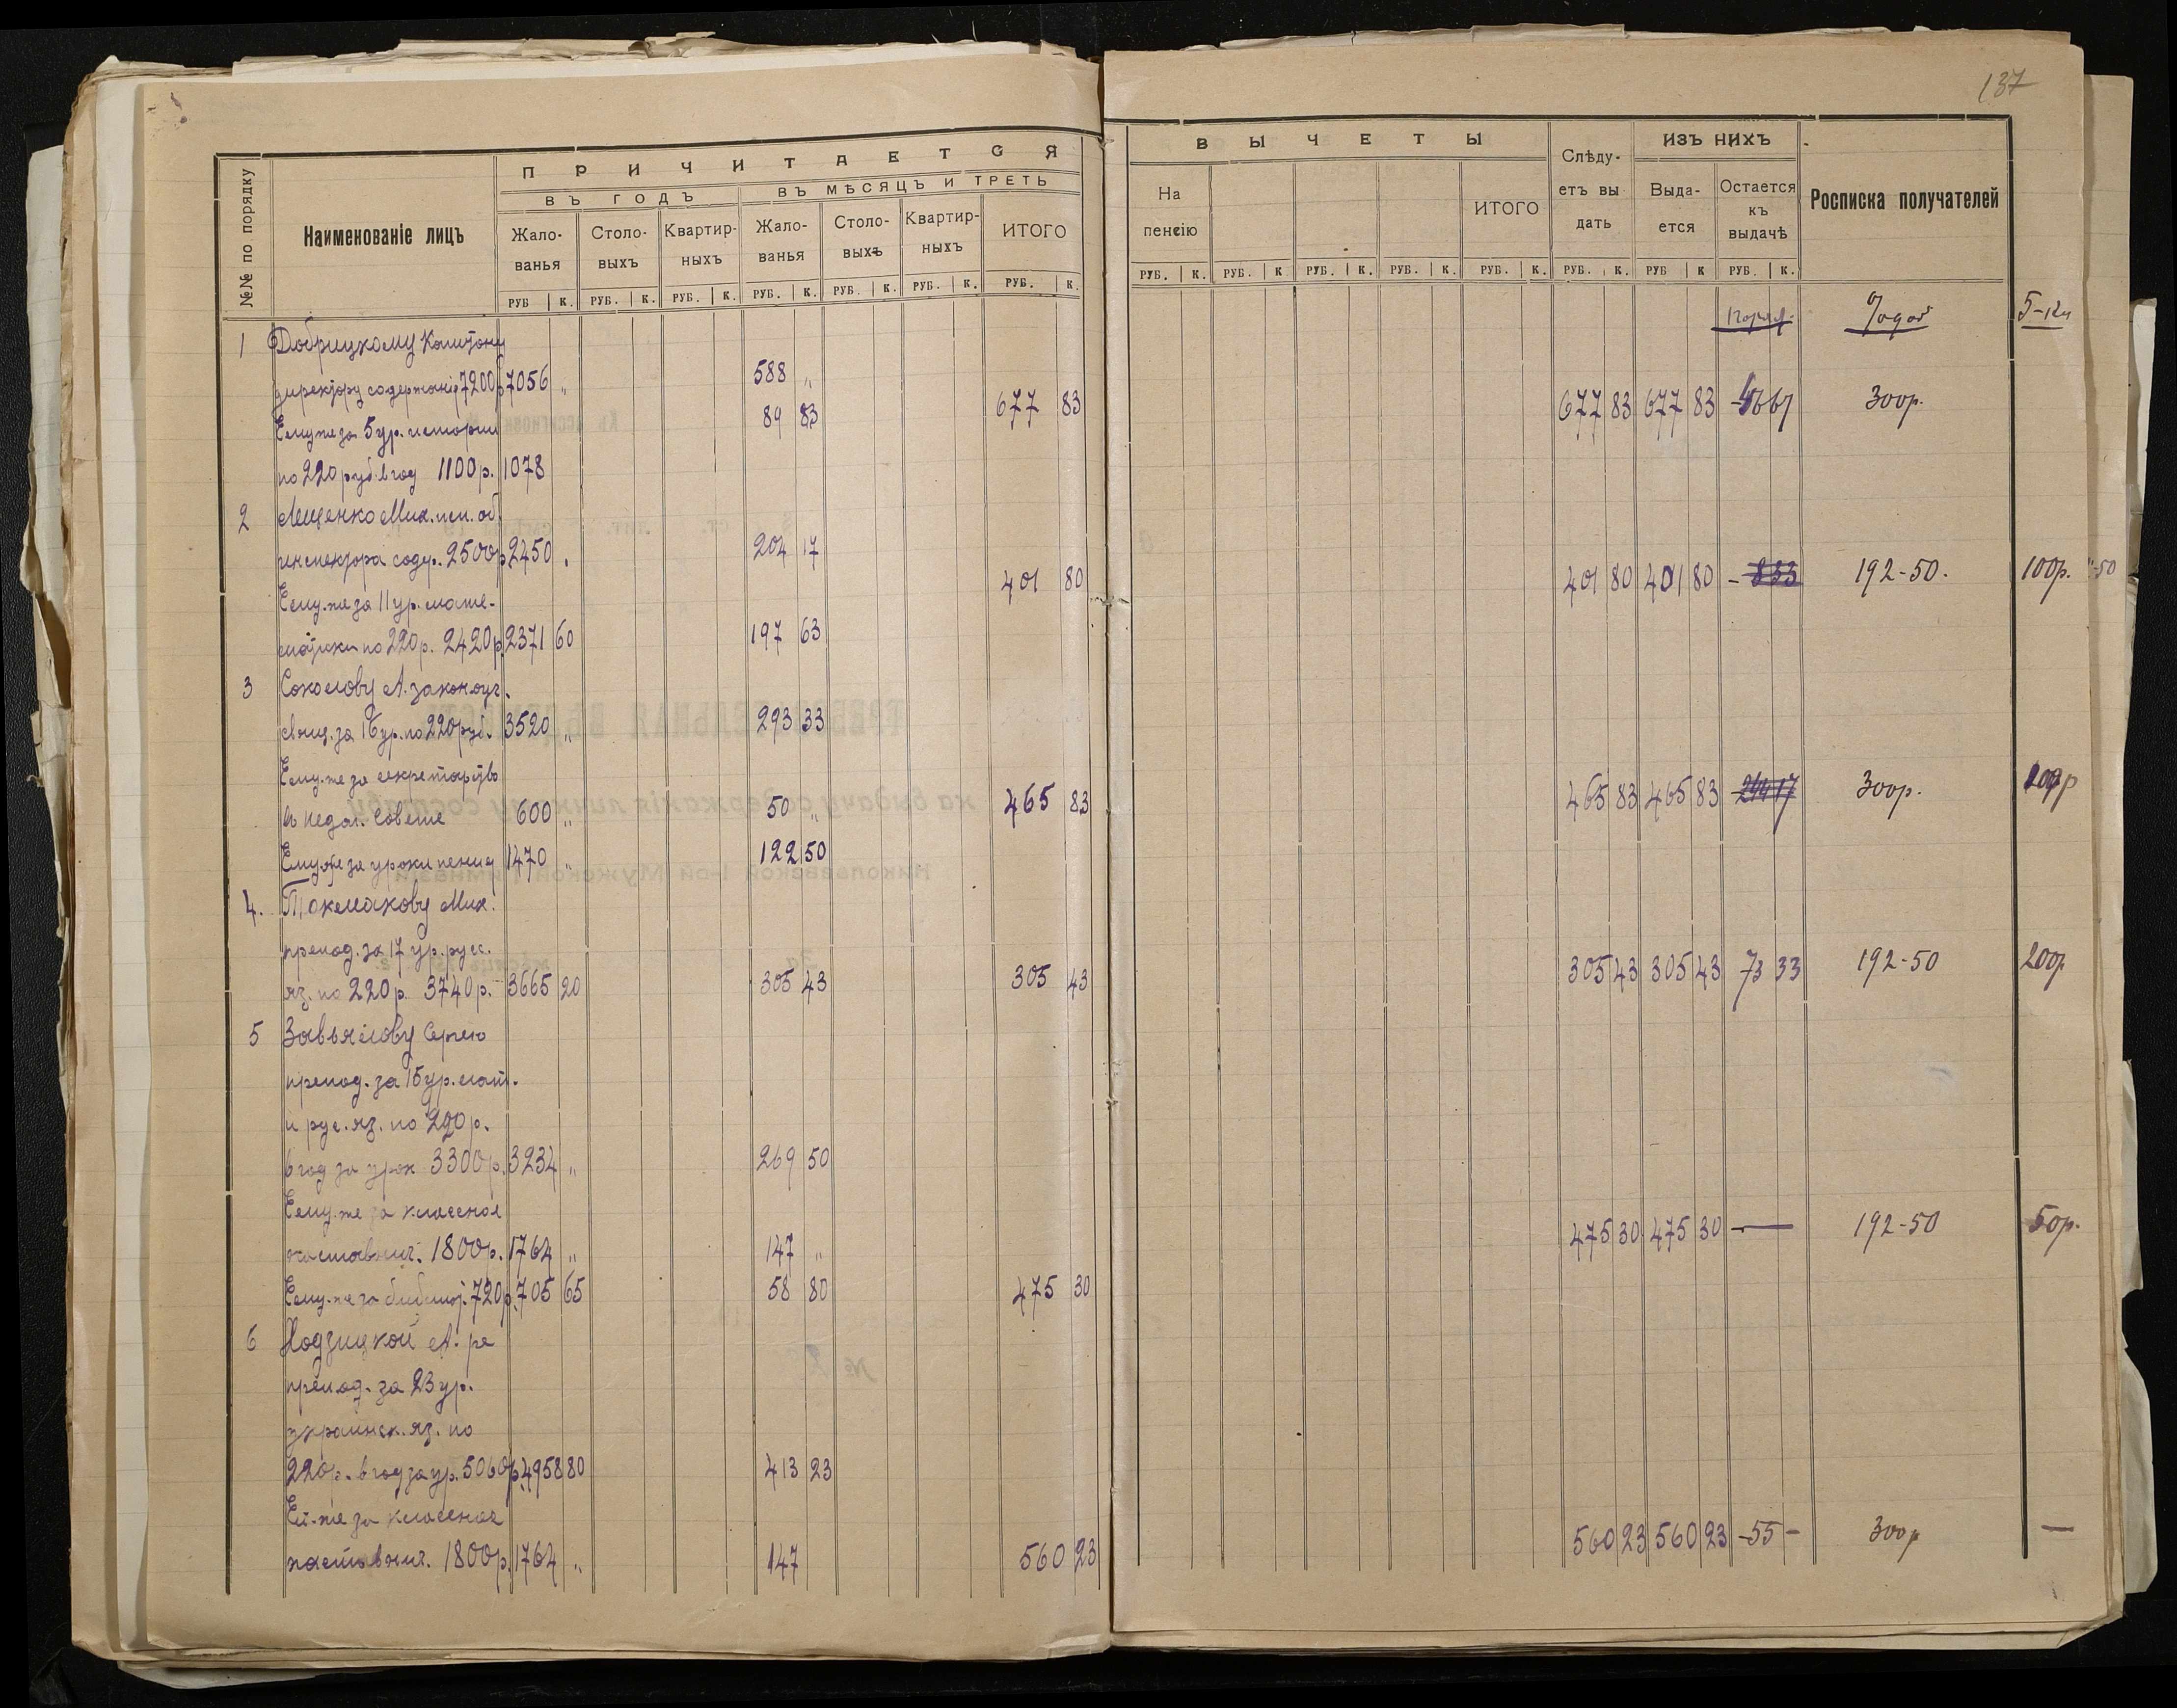 137
№№ по порядку
Наименованіе лицъ
ПРИЧИТАЕТСЯ
ВЪ ГОДЪ
ВЪ МѢСЯЦЪ И ТРЕТЬ
Жало-ванья
Столо-выхъ
Квартир-ныхъ
Жало-ванья
Столо-выхъ
Квартир-ныхъ
ИТОГО
РУБ К. РУБ. К. РУБ. К. РУБ. К. РУБ. К. РУБ. К. РУБ. К.
ВЫЧЕТЫ
На пенсію
ИТОГО
Слѣду-етъ вы дать
ИЗЪ НИХЪ
Выда-ется
Остается къ выдачѣ
Росписка получателей
РУБ. К. РУБ. К РУБ. К. РУБ. К. РУБ. К. РУБ. К. РУБ К РУБ. К.
1 Добрицкому Капитону
директору содержанія 7200р 7056 „ 588 „
677 83 677 83 677 83 300р.
Ему же за 5 ур. истории 89 83
по 220 руб в год 1100р. 1078
2 Лещенко Мих. исп. об.
инспектора содер. 2500р 2450 . 204 17
401 80 401 80 401 80 - 833 192-50. 100р. -50
Ему-же за 11 ур. мате-
матики по 220р. 2420р. 2371 60 197 63
3 Соколову А. законоуч.
свящ. за 16 ур. по 220 руб. 3520 „ 293 33
Ему-же за секретарство
в педаг. Совете 600 „ 50 „ 465 83 465 83 465 83 300р.
Ему же за уроки пения 1470 „ 122 50
4. Токмакову Мих.
препод. за 17 ур. русс.
яз. по 220р. 3740р. 3665 20 305 43 305 43 305 43 305 43 73 33 192-50 200р
5 Завьялову Сергею
препод. за 15 ур. мат.
и рус. яз. по 220р.
в год за урок 3300р. 3234 „ 269 50
Ему-же за классное
наставнич. 1800р. 1764 „ 147 „
475 30 475 30 — 192-50 50р.
Ему-же за библиот. 720р. 705 65 58 80 475 30
6 Ходзицкой А.
препод. за 23 ур.
украинск. яз. по
220р. в год за ур. 5060р. 4958 80 413 23
Ей-же за классное
наставнич. 1800р. 1764 „ 147 560 23 560 23 560 23 -55- 300р —